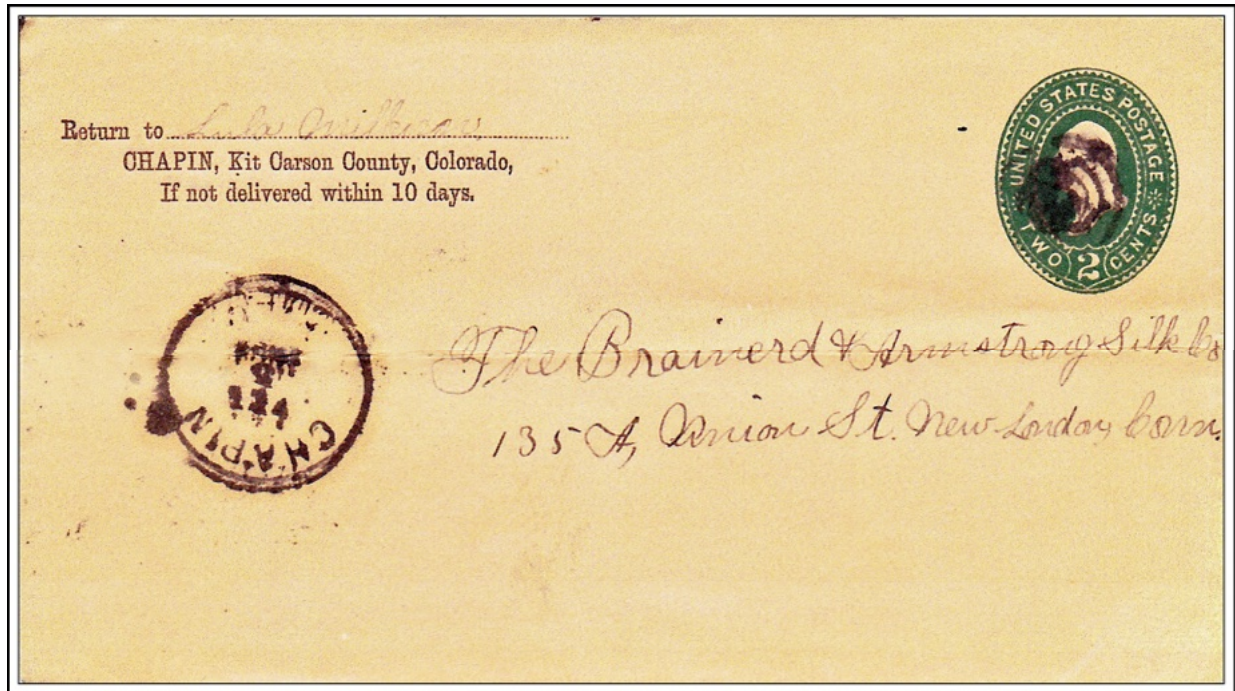 Return to Lula
CHAPIN, Kit Carson County, Colorado,
If not delivered within 10 days.
UNITED STATES POSTAGE
TWO 2 CENTS
The Brainerd & Armstrong Silk Co
135 A, Union St. New London, Conn.
CHAPIN